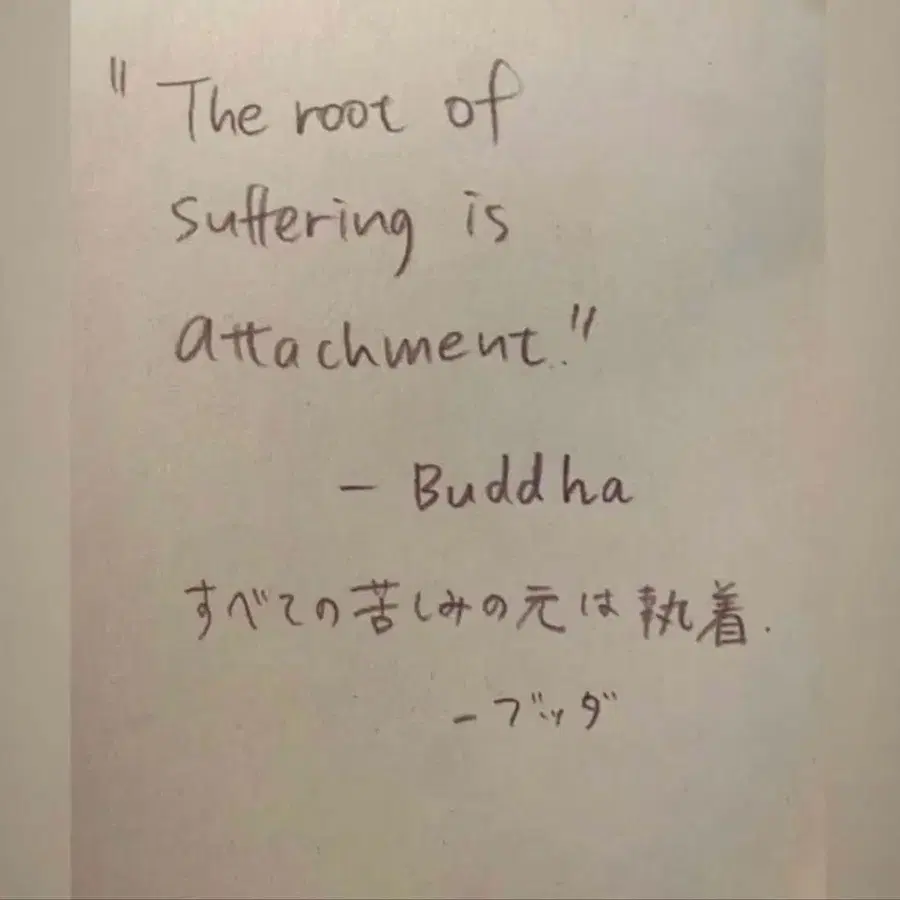 "The root of
suffering is
attachment."
- Buddha
すべての苦しみの元は執着.
-ブッダ